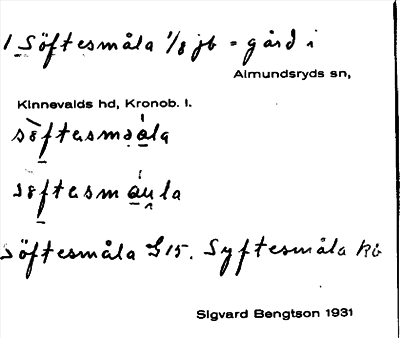 1 Söftesmåla 1/8 jb = gård i
Almundsryds sn,
Kinnevalds hd, Kronob. l.
söftesmåla
söftesmåula
Söftesmåla G 15. Syftesmåla kb
Sigvard Bengtson 1931